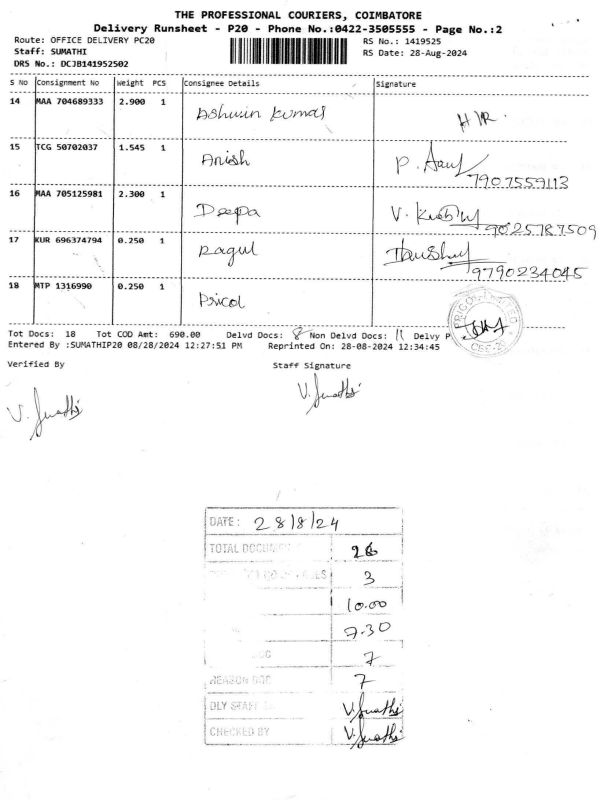 THE PROFESSIONAL COURIERS, COIMBATORE
Delivery Runsheet - P20 - Phone No.:0422-3505555 - Page No.:2
Route: OFFICE DELIVERY PC20 RS No.: 1419525
Staff: SUMATHI RS Date: 28-Aug-2024
DRS No.: DCJB141952502
S No Consignment No Weight PCS Consignee Details Signature
14 MAA 704689333 2.900 1 Ashwin Kumar
15 TCG 50702037 1.545 1 Anish P. 7907559113
16 MAA 705125981 2.300 1 Deepa V. 9025787509
17 KUR 696374794 0.250 1 Ragul 9790234045
18 MTP 1316990 0.250 1 Pricol
Tot Docs: 18 Tot COD Amt: 690.00 Delvd Docs: 8 Non Delvd Docs: 11 Delvy P
Entered By :SUMATHIP20 08/28/2024 12:27:51 PM Reprinted On: 28-08-2024 12:34:45
Verified By Staff Signature
DATE: 28/8/24
TOTAL 26
3
10.00
7.30
7
REASON DOC 7
DLY STAFF
CHECKED BY